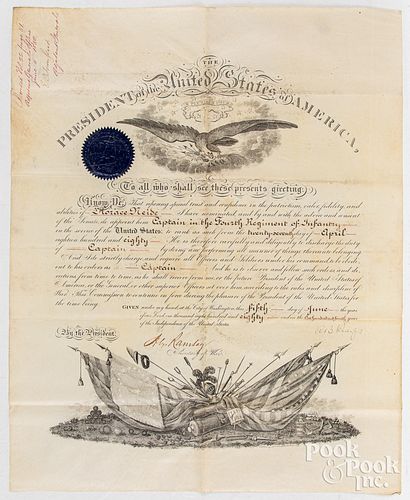 THE
PRESIDENT of the United States of AMERICA,
To all who shall see these presents greeting:
Know Ye, That reposing special trust and confidence in the patriotism, valor, fidelity, and
abilities of Horace Neide I have nominated, and by and with the advice and consent
of the Senate, do appoint him Captain in the Fourth Regiment of Infantry
in the service of the United States: to rank as such from the twenty-seventh day of April
eighteen hundred and eighty. He is therefore carefully and diligently to discharge the duty
of Captain by doing and performing all manner of things thereunto belonging.
And I do strictly charge and require all Officers and Soldiers under his command to be obedi-
ent to his orders as Captain. And he is to observe and follow such orders and di-
rections from time to time as he shall receive from me, or the future President of the United States of
America, or the General or other superior Officers set over him according to the rules and discipline of
War. This Commission to continue in force during the pleasure of the President of the United States for
the time being.
GIVEN under my hand at the City of Washington, this fifth day of June in the year
of our Lord one thousand eight hundred and eighty and in the year
of the Independence of the United States.
By the President:
Secretary of War.
Pook
& Pook
Inc.